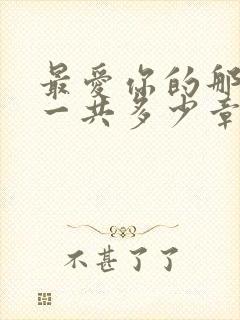 最爱你的那
一共多少章
不甚了了